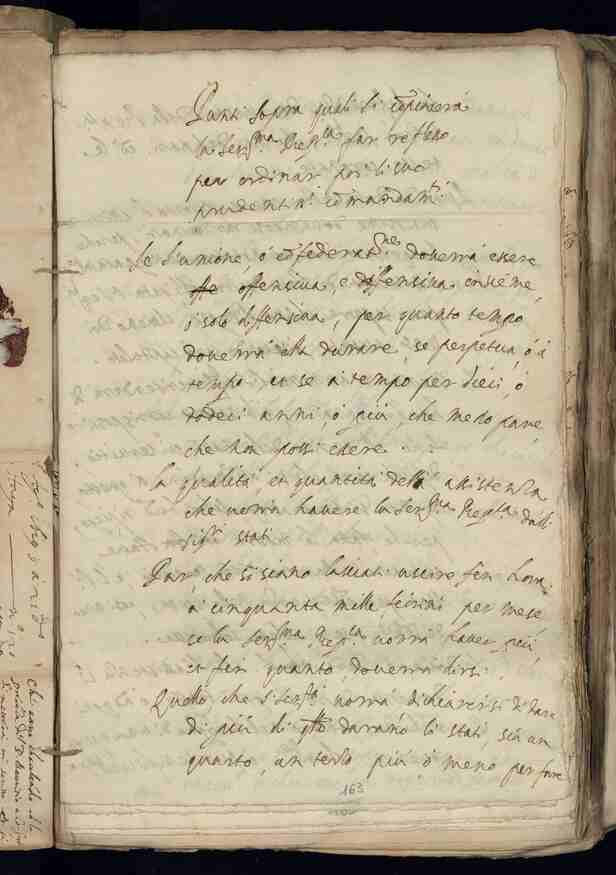 Punti sopra quali si compiacerà
la Ser.ma Rep.ca far reflesso
per ordinar poi li suoi
prudentiss.mi comandam.ti
Se l'unione, ò confederat.ne doverrà essere
offensiva, e diffensiva insieme,
ò solo diffensiva, per quanto tempo
doverrà ella durare, se perpetua, ò à
tempo et se à tempo per dieci, ò
dodeci anni, ò più, che meno pare
che non possi essere.
La qualità, et quantità dell' assistenza
che vorrà havere la Ser.ma Rep.ca dalli
SS.ri stati
Par che si siano lasciati uscire fin hora
à cinquanta mille fiorini per mese
se la Ser.ma Rep.ca vorrà haver più
et fin quanto doverrà dirsi.
Quello che S. Ser.tà vorrà dichiarirsi di dare
di più di q.llo darano li stati, sia un
quarto, un terzo più ò meno per fare
163